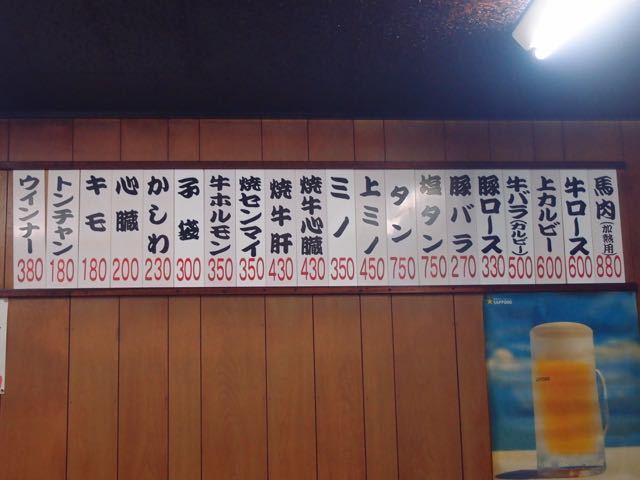 馬肉(加熱用) 880
牛ロース 600
上カルビー 600
牛バラ(カルビー) 500
豚ロース 330
豚バラ 270
塩タン 750
タン 750
上ミノ 450
ミノ 350
焼牛心臓 430
焼牛肝 430
焼センマイ 350
牛ホルモン 350
子袋 300
かしわ 230
心臓 200
キモ 180
トンチャン 180
ウインナー 380
SAPPORO